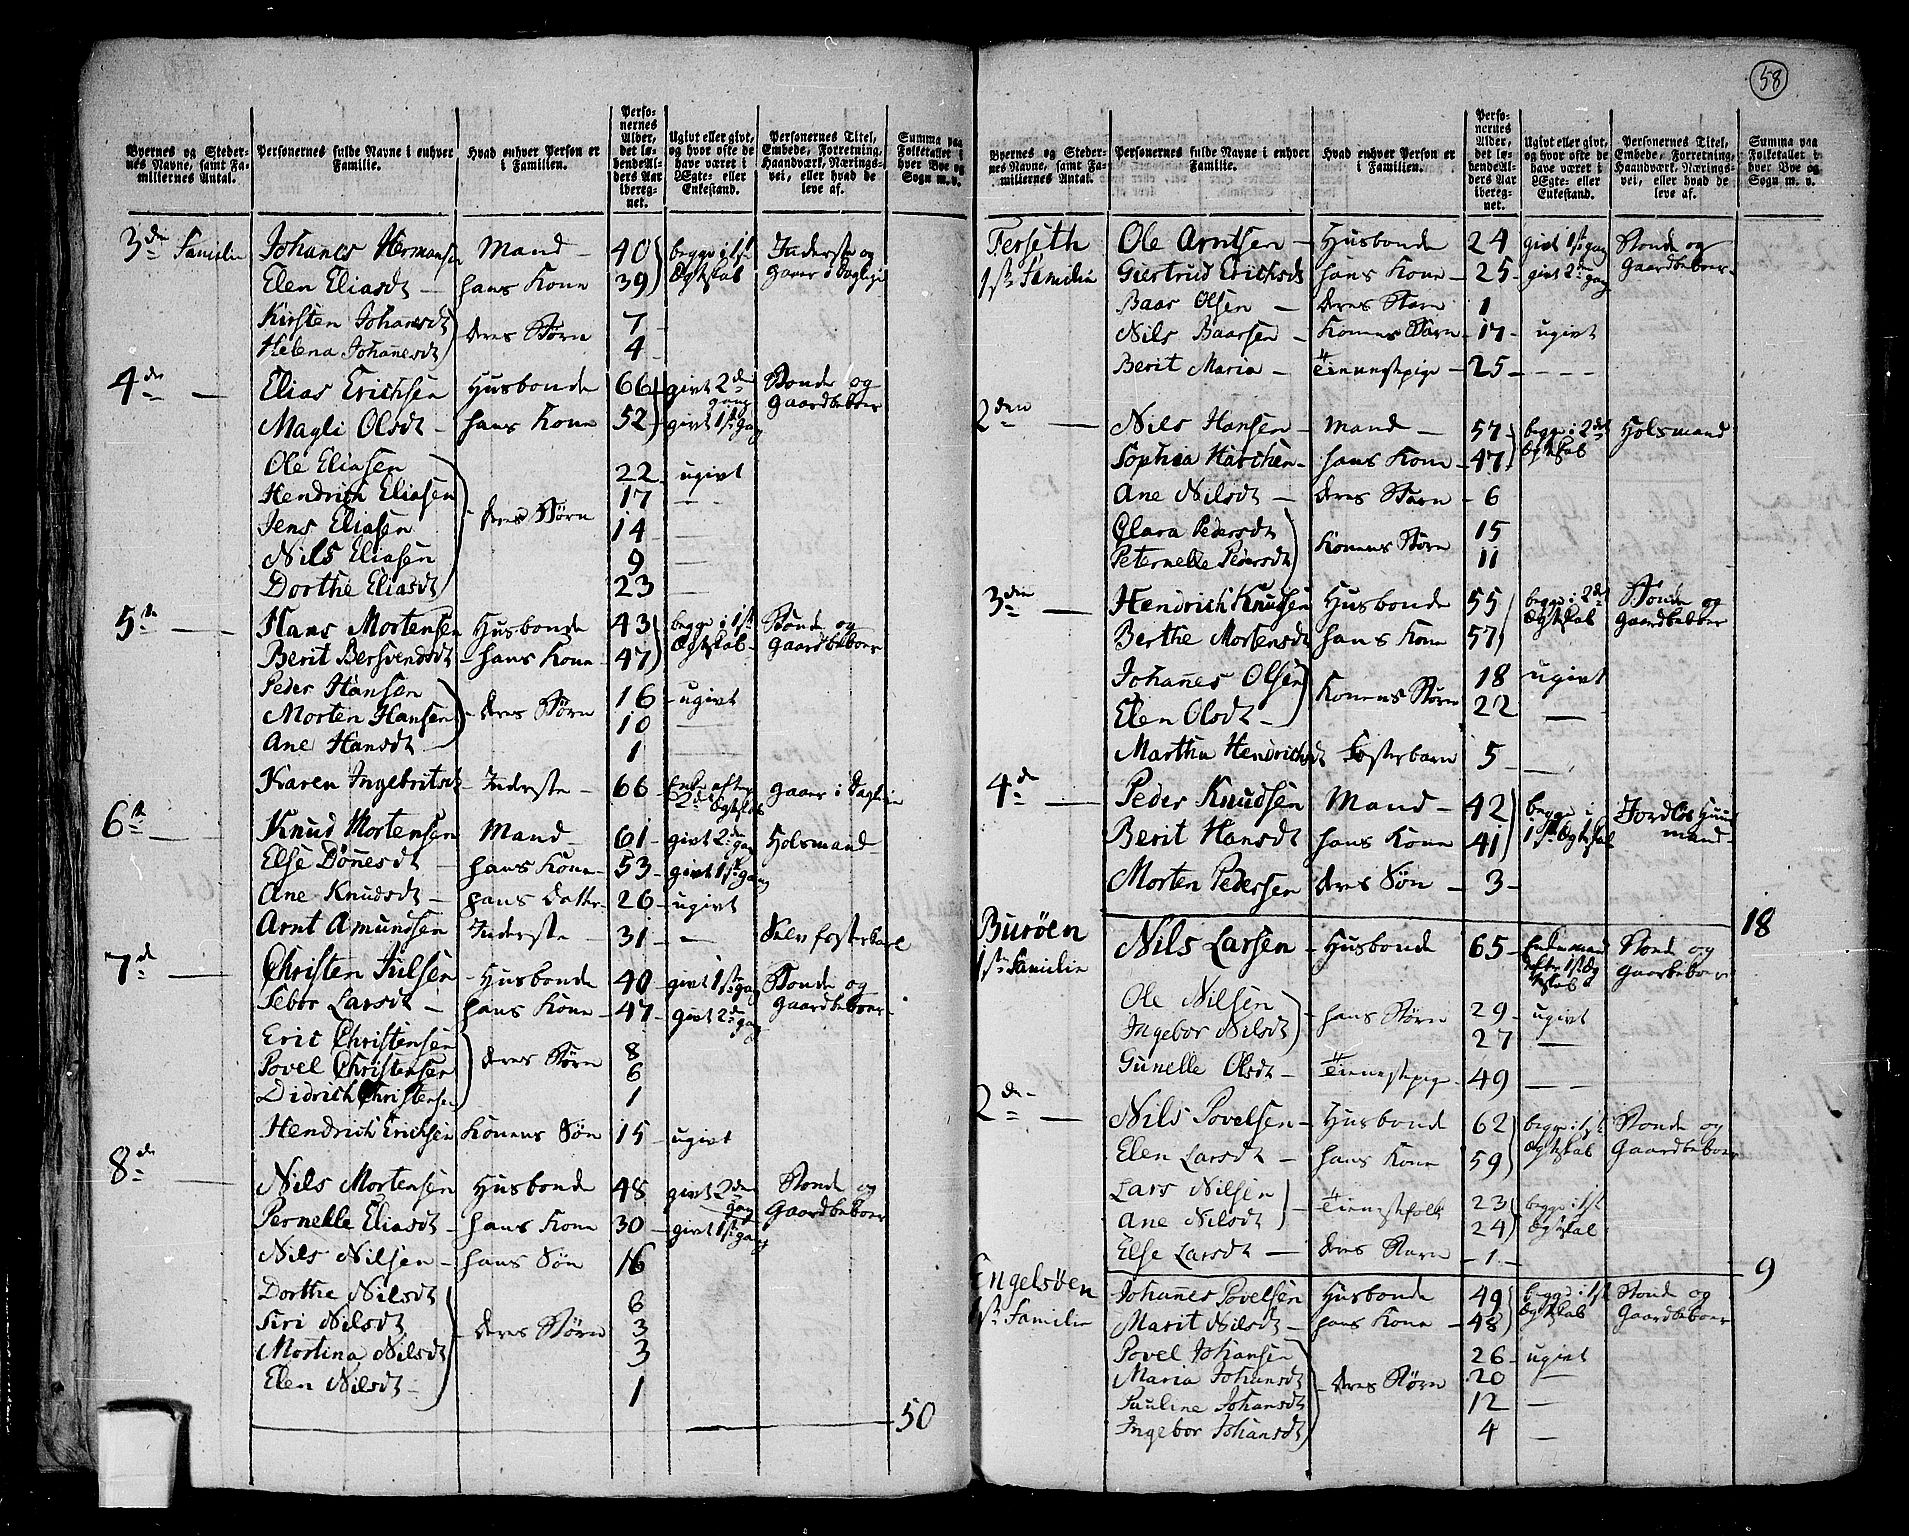 58
Byernes og Stedernes Navne, samt Familiernes Antal. Personernes fulde Navne i enhver Familie. Hvad enhver Person er i Familien. Personernes Alder, det løbende Alders Aar iberegnet. Ugivt eller givt, og hvor ofte de have været i Ægte- eller Enkestand. Personernes Titel, Embede, Forretning, Haandværk, Næringsvei, eller hvad de leve af. Summa paa Folketallet i hver Bye og Sogn m. v.
3de Familie Johanes Hermansen Mand 40 begge i 1st Ægtskab Inderste og
Elen Eliasdt hans Kone 39 gaaer i Daglije
Kirsten Johansdt deres Børn 7
Helena Johanesdt 4
4de Elias Erichsen Husbonde 66 givt 2den gang Bonde og Gaardbeboer
Magli Olsdt hans Kone 52 givt 1st gang
Ole Eliasen deres Børn 22 ugivt
Hendrich Eliasen 17 —
Jens Eliasen 14 —
Nils Eliasen 9 —
Dorthe Eliasdt 23 —
5te Hans Mortensen Husbonde 43 begge i 1st Ægtskab Bonde og Gaardbeboer
Berit Bersvendsdt hans Kone 47
Peder Hansen deres Børn 16 ugivt
Morten Hansen 10 —
Ane Hansdt 1 —
Karen Ingebritsdt Inderste 66 Enke efter 2det Ægtskab gaaer i Daglije
6te Knud Mortensen Mand 61 givt 2den gang Holsmand
Else Dønesdt hans Kone 53 givt 1st gang
Ane Knudsdt hans Datter 26 ugivt
Arnt Amundsen Inderste 31 —
7de Christen Julsen Husbonde 40 givt 1st gang Bonde og
Sebor Larsdt hans Kone 47 givt 2den gang Gaardbeboer
Eric Christensen deres Børn 8
Povel Christensen 6
Didrich Christensen 1
Hendrich Erichsen Konens Søn 15 ugivt
8de Nils Mortensen Husbonde 48 givt 2den gang Bonde og
Pernelle Eliasdt hans Kone 30 givt 1st gang Gaardbeboer
Nils Nilsen hans Søn 16
Dorthe Nilsdt deres Børn 6
Siri Nilsdt 3
Mortina Nilsdt 3
Elen Nilsdt 1
50
Byernes og Stedernes Navne, samt Familiernes Antal. Personernes fulde Navne i enhver Familie. Hvad enhver Person er i Familien. Personernes Alder, det løbende Alders Aar iberegnet. Ugivt eller givt, og hvor ofte de have været i Ægte- eller Enkestand. Personernes Titel, Embede, Forretning, Haandværk, Næringsvei, eller hvad de leve af. Summa paa Folketallet i hver Bye og Sogn m. v.
Ferseth Ole Arntsen Husbonde 24 givt 1st gang Bonde og
1st Familie Giertrud Erichsdt hans Kone 25 givt 2den gang Gaardbeboer
Baar Olsen deres Barn 1
Nils Baarsen Konens Barn 17 ugivt
Berit Maria Tienestpige 25 — — —
2den Nils Hansen Mand 57 begge i 2det Ægtskab Holsmand
Sophia hans Kone 47
Ane Nilsdt deres Barn 6
Clara Pedersdt Konens Børn 15
Peternelle Pedersdt 11
3den Hendrich Knudsen Husbonde 55 begge i 2det Ægtskab Bonde og Gaardbeboer
Berthe Mortensdt hans Kone 57
Johanes Olsen Konens Børn 18 ugivt
Elen Olsdt 22 —
Martha Hendrichsdt Fosterbarn 5 —
4de Peder Knudsen Mand 42 begge i 1st Ægtskab Jordløs Huusmand
Berit Hansdt hans Kone 41
Morten Pedersen deres Søn 3
18
Burøen Nils Larsen Husbonde 65 Enkemand efter 1st Ægtskab Bonde og
1st Familie Gaardbeboer
Ole Nilsen hans Børn 29 ugivt
Ingebor Nilsdt 27 —
Gunelle Olsdt Tienestpige 49 — —
2de Nils Povelsen Husbonde 62 begge i 1st Ægtskab Bonde og
Elen Larsdt hans Kone 59 Gaardbeboer
Lars Nilsen Tienestfolk 23 begge i 1st
Ane Nilsdt 24 Ægtskab
Else Larsdt deres Barn 1
9
Engelsøen Johanes Povelsen Husbonde 49 begge i 1st Bonde og
1st Familie Marit Nilsdt hans Kone 48 Ægtskab Gaardbeboer
Povel Johansen deres Børn 26 ugivt
Maria Johansdt 20 —
Pauline Johansdt 12 —
Ingebor Johansdt 4 —